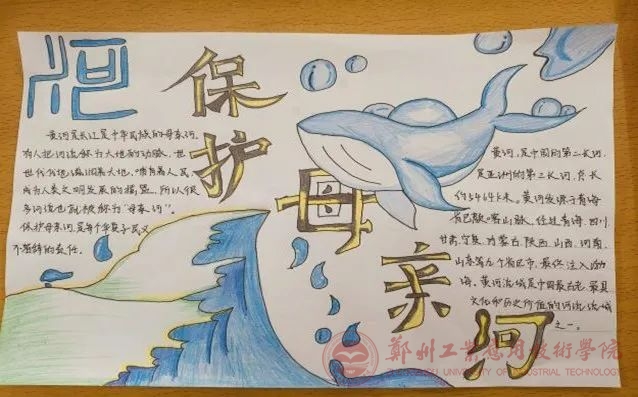 保护母亲河
黄河是长江是中华民族的母亲河,
有人把河流称为大地的动脉,世
世代代地滋润着大地,哺育着人民
成为人类文明发展的摇篮,所以很
多河流也就被称为“母亲河”。
保护母亲河是每个华夏子民义
不容辞的责任。
黄河,是中国的第二长河
是亚洲的第二长河,总长
约5464千米。黄河发源于青海
省巴颜喀喇山脉,经过青海、四川
甘肃、宁夏、内蒙古、陕西、山西、河南、
山东等九个省区市,最终注入渤
海。黄河流域是中国最古老、最具
文化和历史价值的河流流域
之一。
鄭州工業應用技術學院
ZHENGZHOU UNIVERSITY OF INDUSTRIAL TECHNOLOGY